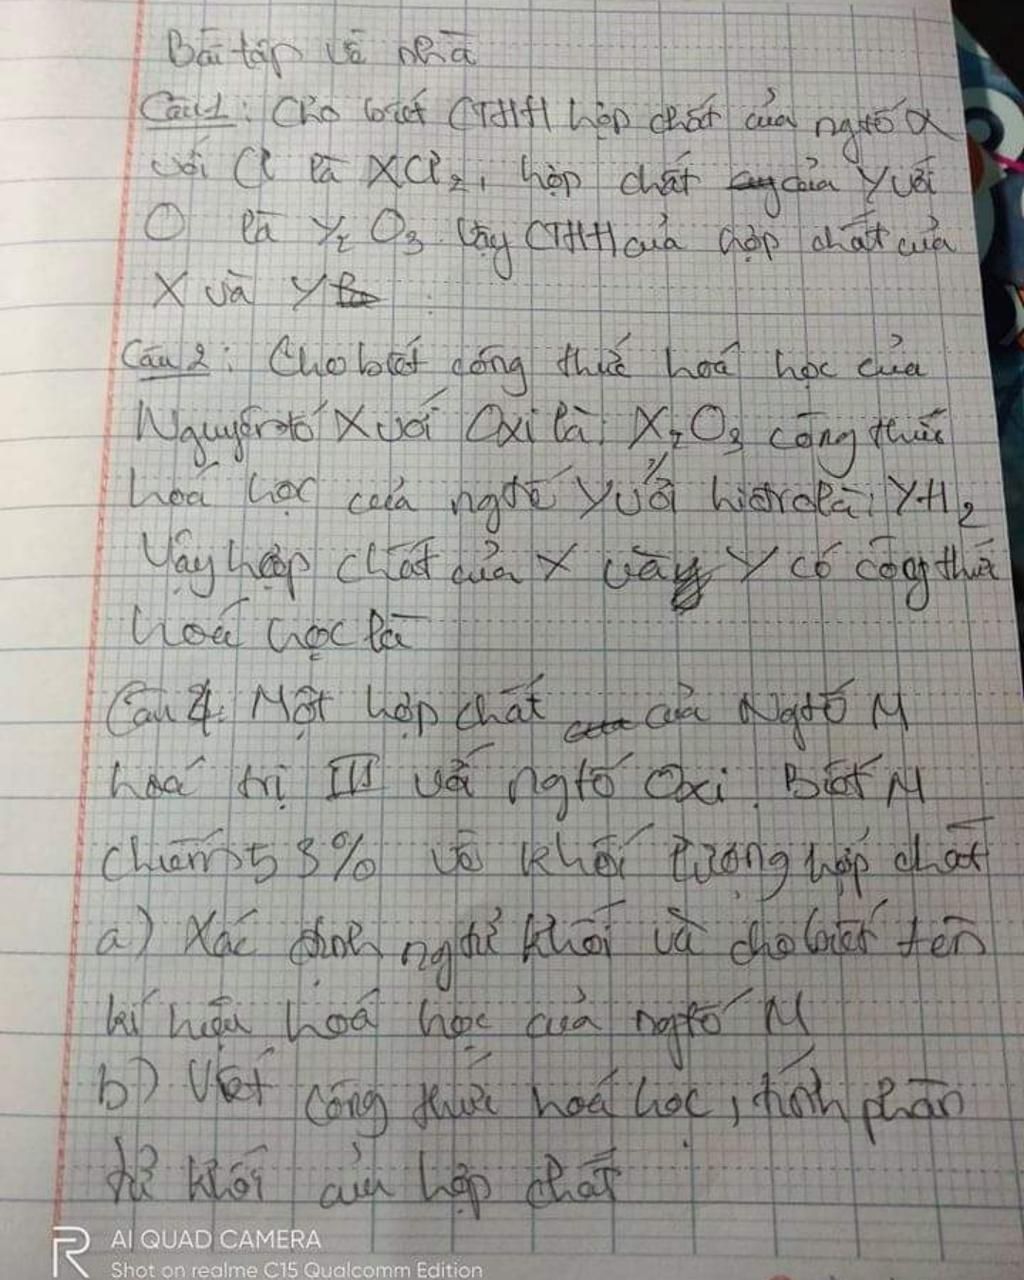 Bài tập về nhà
Câu 1: Cho biết CTHH hợp chất của ngtố X
với Cl là XCl₂, hợp chất của Y với
O là Y₂O₃. Vậy CTHH của hợp chất của
X và Y
Câu 2: Cho biết công thức hoá học của
Nguyên tố X với Oxi là: X₂O₃ công thức
hoá học của ngtố Y với hiđro là: YH₂
Vậy hợp chất của X và Y có công thức
hoá học là
Câu 4: Một hợp chất của Ngtố M
hoá trị III với ngtố Oxi. Biết M
chiếm 53% về khối lượng hợp chất
a) Xác định ngtử khối và cho biết tên
kí hiệu hoá học của ngtố M
b) Viết công thức hoá học, tính phân
tử khối của hợp chất
AI QUAD CAMERA
Shot on realme C15 Qualcomm Edition